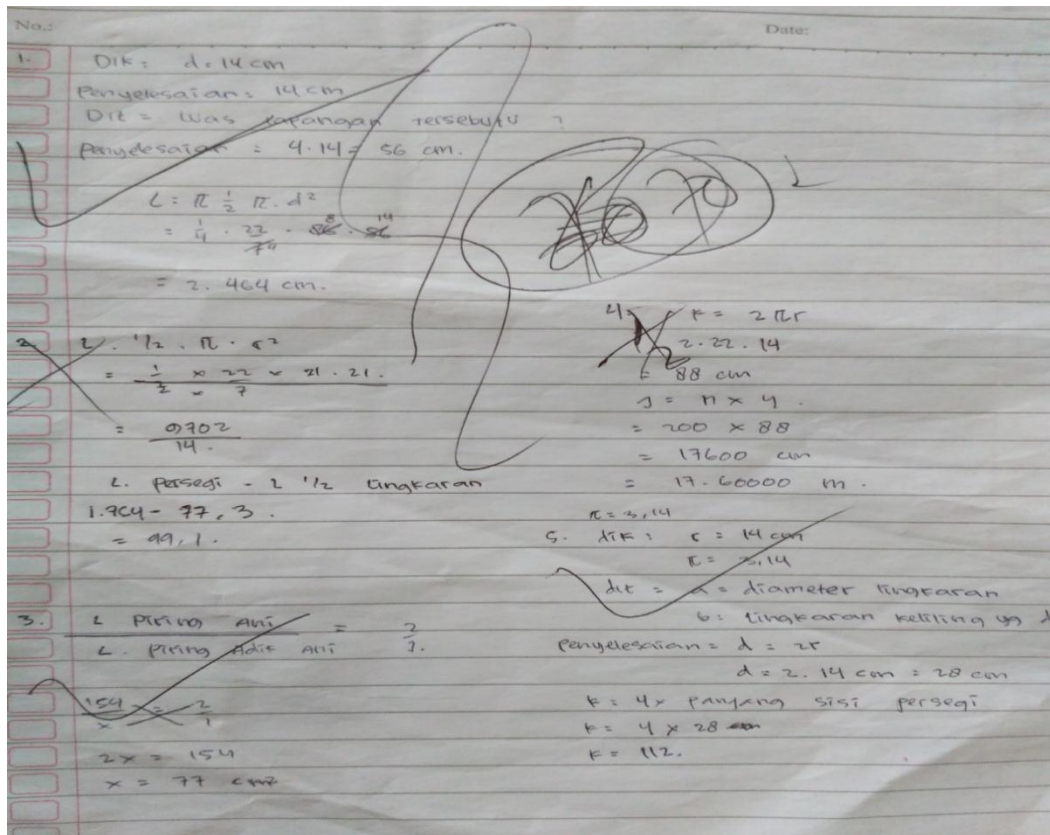 No.:
Date:
1. Dik: d = 14 cm
Penyelesaian = 14 cm
Dit = Luas lapangan tersebutu ?
Penyelesaian = 4 . 14 = 56 cm.
L = π 1/2 π . d²
= 1/4 . 22/7
= 2. 464 cm.
70
2. L . 1/2 . π . r²
= 1/2 × 22/7 × 21 . 21 .
= 9702/14 .
L. Persegi - 2 1/2 Lingkaran
- 77, 3 .
= 99, 1 .
3. L Piring Ani / L. Piring Adik Ani = 2/3.
154/x = 2/1
2x = 154
x = 77 cm²
4. K = 2 πr
2 . 22 . 14
= 88 cm
s = n × 4 .
= 200 × 88
= 17600 cm
= 17. 60000 m .
π = 3,14
5. dik : r = 14 cm
π = 3,14
dit = a = diameter lingkaran
b: Lingkaran keliling yg d
Penyelesaian = d = 2r
d = 2 . 14 cm = 28 cm
K = 4 × Panjang sisi persegi
K = 4 × 28
K = 112.